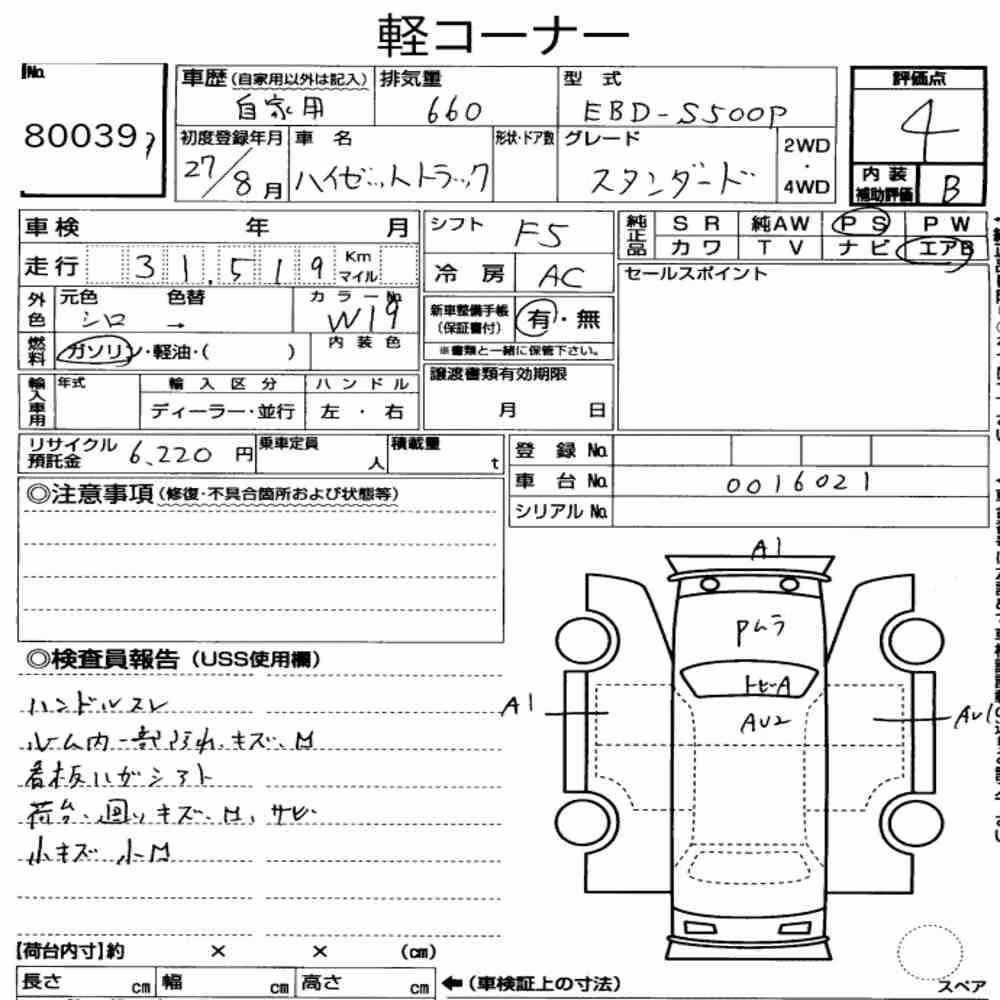 軽コーナー
No.
80039
車歴(自家用以外は記入)
自家用
排気量
660
型 式
EBD-S500P
評価点
4
初度登録年月
27/8月
車 名
ハイゼットトラック
形状・ドア数
グレード
スタンダード
2WD
・
4WD
内 装
補助評価
B
車検 年 月
シフト
F5
純正品
SR 純AW PS PW
カワ TV ナビ エアB
走行 31,519 Km
マイル
冷 房
AC
セールスポイント
外色
元色 色替
シロ →
カラーNo.
W19
新車整備手帳
(保証書付)
有・無
※書類と一緒に保管下さい。
燃料
ガソリン・軽油・( )
内 装 色
輸入車用
年式
輸 入 区 分
ディーラー・並行
ハ ン ド ル
左 ・ 右
譲渡書類有効期限
月 日
リサイクル
預託金
6,220 円
乗車定員
人
積載量
t
登 録 No.
車 台 No.
0016021
シリアル No.
◎注意事項(修復・不具合箇所および状態等)
◎検査員報告(USS使用欄)
ハンドルスレ
ルーム内一部汚れ、キズ、M
看板ハガシアト
荷台、回りキズ、M、サビ
小キズ 小M
A1
Pムラ
トビーA
AU2
A1
AU1
【荷台内寸】約 × × (cm)
長さ cm
幅 cm
高さ cm
←(車検証上の寸法)
スペア